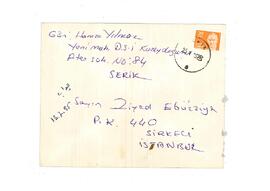 Gön: Hamza Yılmaz
Yeni mah. D.S.İ Kuzeydoğusu
Ateş sok. No: 84
SERİK
Sayın Ziyad Ebüzziya
P.K. 440
SİRKECİ
İSTANBUL